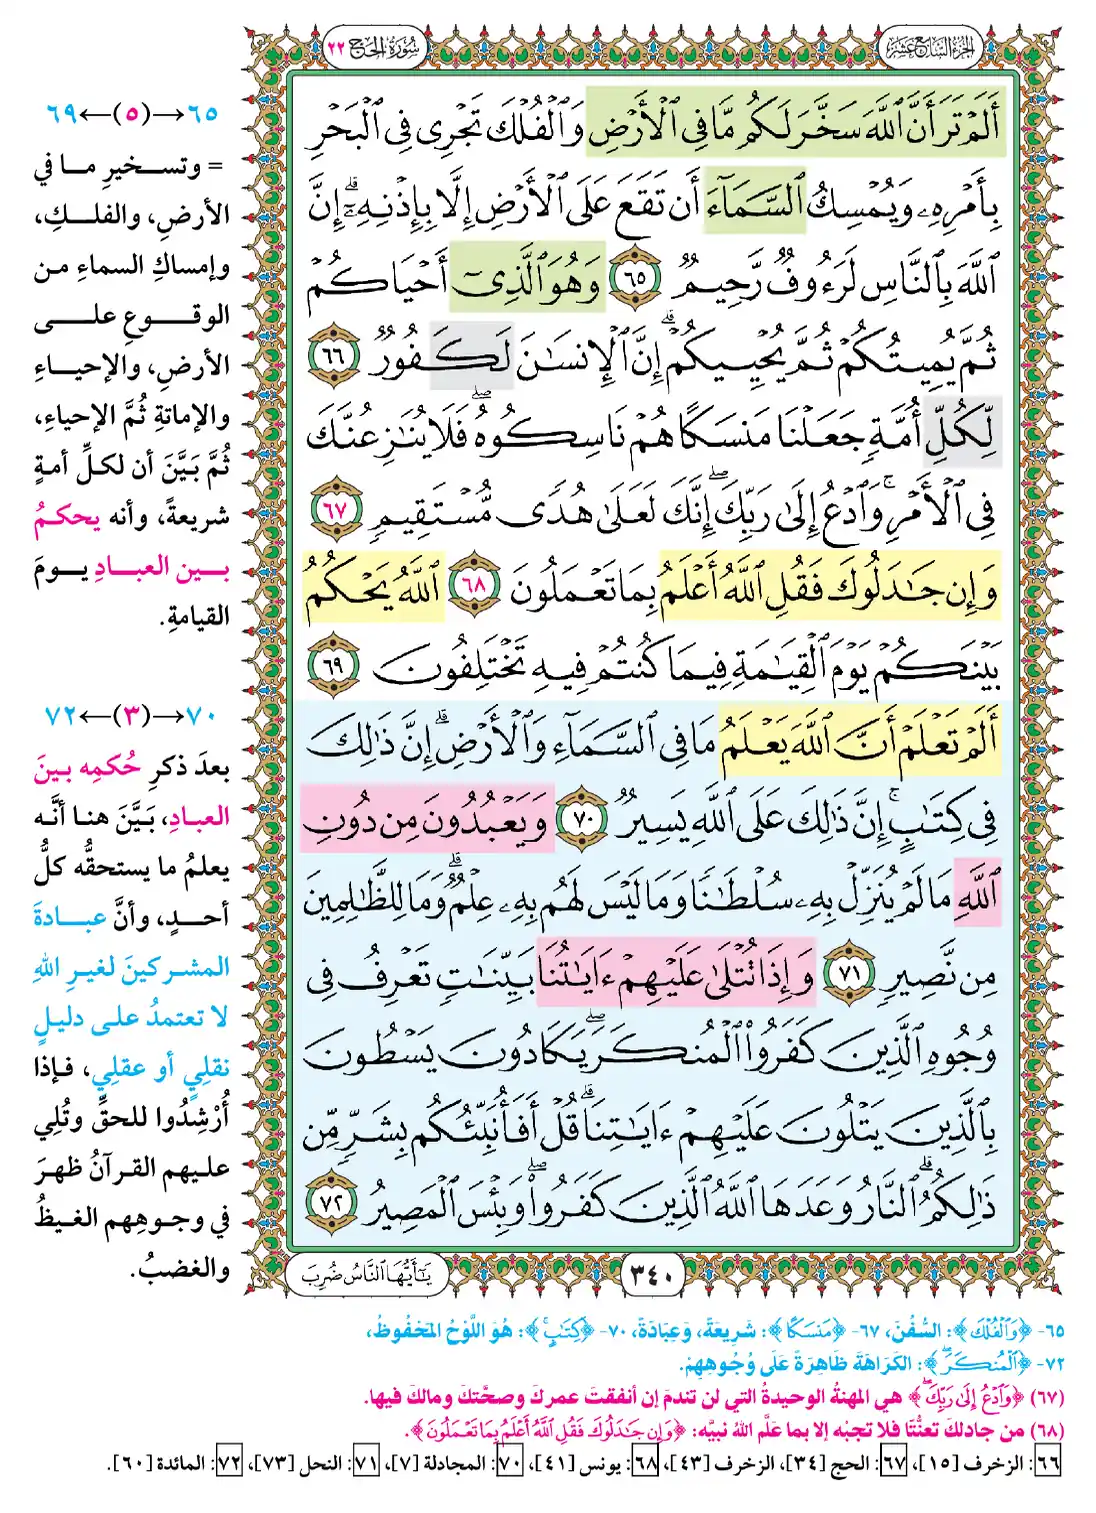 الجزء السابع عشر
سورة الحج ٢٢
أَلَمْ تَرَ أَنَّ ٱللَّهَ سَخَّرَ لَكُم مَّا فِى ٱلْأَرْضِ وَٱلْفُلْكَ تَجْرِى فِى ٱلْبَحْرِ
بِأَمْرِهِۦ وَيُمْسِكُ ٱلسَّمَآءَ أَن تَقَعَ عَلَى ٱلْأَرْضِ إِلَّا بِإِذْنِهِۦٓ ۗ إِنَّ
ٱللَّهَ بِٱلنَّاسِ لَرَءُوفٌ رَّحِيمٌ ٦٥ وَهُوَ ٱلَّذِىٓ أَحْيَاكُمْ
ثُمَّ يُمِيتُكُمْ ثُمَّ يُحْيِيكُمْ ۗ إِنَّ ٱلْإِنسَـٰنَ لَكَفُورٌ ٦٦
لِّكُلِّ أُمَّةٍ جَعَلْنَا مَنسَكًا هُمْ نَاسِكُوهُ ۖ فَلَا يُنَـٰزِعُنَّكَ
فِى ٱلْأَمْرِ ۚ وَٱدْعُ إِلَىٰ رَبِّكَ ۖ إِنَّكَ لَعَلَىٰ هُدًى مُّسْتَقِيمٍ ٦٧
وَإِن جَـٰدَلُوكَ فَقُلِ ٱللَّهُ أَعْلَمُ بِمَا تَعْمَلُونَ ٦٨ ٱللَّهُ يَحْكُمُ
بَيْنَكُمْ يَوْمَ ٱلْقِيَـٰمَةِ فِيمَا كُنتُمْ فِيهِ تَخْتَلِفُونَ ٦٩
أَلَمْ تَعْلَمْ أَنَّ ٱللَّهَ يَعْلَمُ مَا فِى ٱلسَّمَآءِ وَٱلْأَرْضِ ۗ إِنَّ ذَٰلِكَ
فِى كِتَـٰبٍ ۚ إِنَّ ذَٰلِكَ عَلَى ٱللَّهِ يَسِيرٌ ٧٠ وَيَعْبُدُونَ مِن دُونِ
ٱللَّهِ مَا لَمْ يُنَزِّلْ بِهِۦ سُلْطَـٰنًا وَمَا لَيْسَ لَهُم بِهِۦ عِلْمٌ ۗ وَمَا لِلظَّـٰلِمِينَ
مِن نَّصِيرٍ ٧١ وَإِذَا تُتْلَىٰ عَلَيْهِمْ ءَايَـٰتُنَا بَيِّنَـٰتٍ تَعْرِفُ فِى
وُجُوهِ ٱلَّذِينَ كَفَرُوا۟ ٱلْمُنكَرَ ۖ يَكَادُونَ يَسْطُونَ
بِٱلَّذِينَ يَتْلُونَ عَلَيْهِمْ ءَايَـٰتِنَا ۗ قُلْ أَفَأُنَبِّئُكُم بِشَرٍّ مِّن
ذَٰلِكُمُ ۗ ٱلنَّارُ وَعَدَهَا ٱللَّهُ ٱلَّذِينَ كَفَرُوا۟ ۖ وَبِئْسَ ٱلْمَصِيرُ ٧٢
٣٤٠
يَـٰٓأَيُّهَا ٱلنَّاسُ ضُرِبَ
٦٥→(٥)←٦٩
= وتسخيرِ ما في
الأرضِ، والفلكِ،
وإمساكِ السماءِ من
الوقوعِ على
الأرضِ، والإحياءِ
والإماتةِ ثُمَّ الإحياءِ،
ثُمَّ بَيَّنَ أن لكلِّ أمةٍ
شريعةً، وأنه يحكمُ
بين العبادِ يومَ
القيامةِ.
٧٠→(٣)←٧٢
بعدَ ذكرِ حُكمِه بينَ
العبادِ، بَيَّنَ هنا أنَّه
يعلمُ ما يستحقُّه كلُّ
أحدٍ، وأنَّ عبادةَ
المشركينَ لغيرِ اللهِ
لا تعتمدُ على دليلٍ
نقليٍ أو عقليٍ، فإذا
أُرْشِدُوا للحقِّ وتُلِي
عليهم القرآنُ ظهرَ
في وجوهِهم الغيظُ
والغضبُ.
٦٥- ﴿وَٱلْفُلْكَ﴾: السُّفُنَ، ٦٧- ﴿مَنسَكًا﴾: شَرِيعَةً، وَعِبَادَةً، ٧٠- ﴿كِتَـٰبٍ ۚ﴾: هُوَ اللَّوْحُ المَحْفُوظُ،
٧٢- ﴿ٱلْمُنكَرَ ۖ﴾: الكَرَاهَةَ ظَاهِرَةً عَلَى وُجُوهِهِمْ.
(٦٧) ﴿وَٱدْعُ إِلَىٰ رَبِّكَ ۖ﴾ هي المهنةُ الوحيدةُ التي لن تندمَ إن أنفقتَ عمركَ وصحَّتكَ ومالكَ فيها.
(٦٨) من جادلكَ تعنُّتًا فلا تجبْه إلا بما علَّم اللهُ نبيَّه: ﴿وَإِن جَـٰدَلُوكَ فَقُلِ ٱللَّهُ أَعْلَمُ بِمَا تَعْمَلُونَ﴾.
٦٦: الزخرف [١٥]، ٦٧: الحج [٣٤]، الزخرف [٤٣]، ٦٨: يونس [٤١]، ٧٠: المجادلة [٧]، ٧١: النحل [٧٣]، ٧٢: المائدة [٦٠].